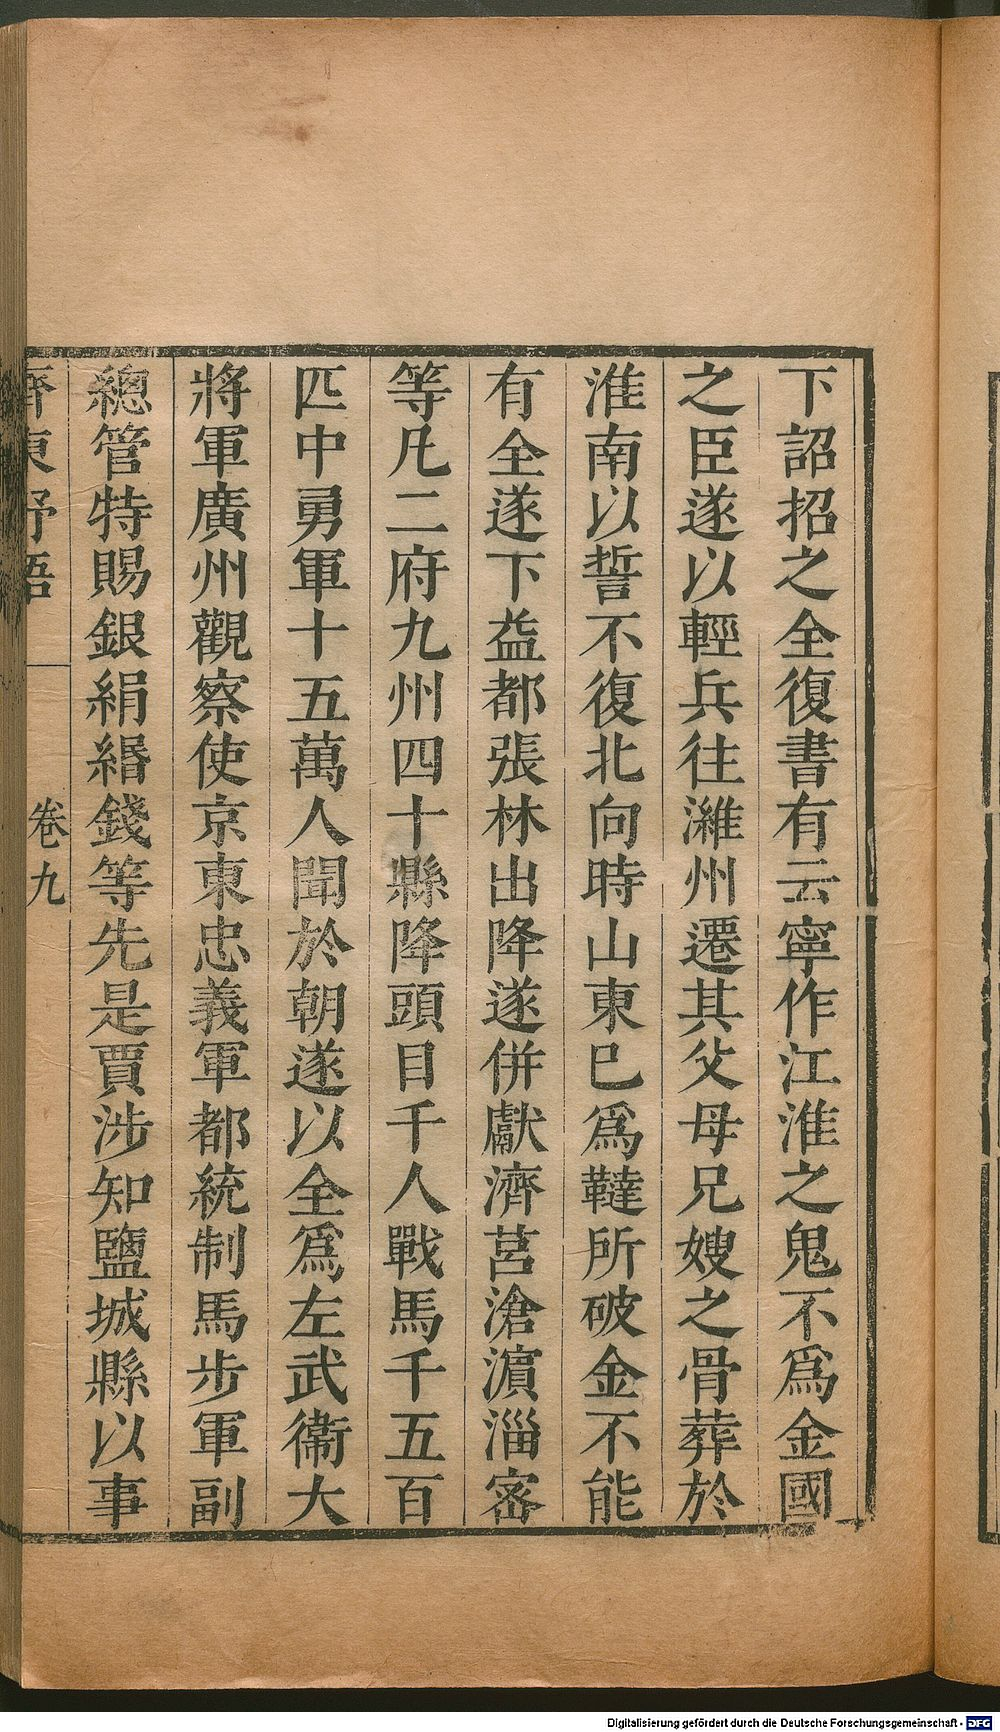 下詔招之全復書有云寧作江淮之鬼不爲金國
之臣遂以輕兵往濰州遷其父母兄嫂之骨葬於
淮南以誓不復北向時山東巳爲韃所破金不能
有全遂下益都張林出降遂併獻濟莒滄濵淄密
等凡二府九州四十縣降頭目千人戰馬千五百
匹中勇軍十五萬人聞於朝遂以全爲左武衞大
將軍廣州觀察使京東忠義軍都統制馬步軍副
總管特賜銀絹緡錢等先是賈涉知鹽城縣以事
齊東野語 卷九
Digitalisierung gefördert durch die Deutsche Forschungsgemeinschaft - DFG